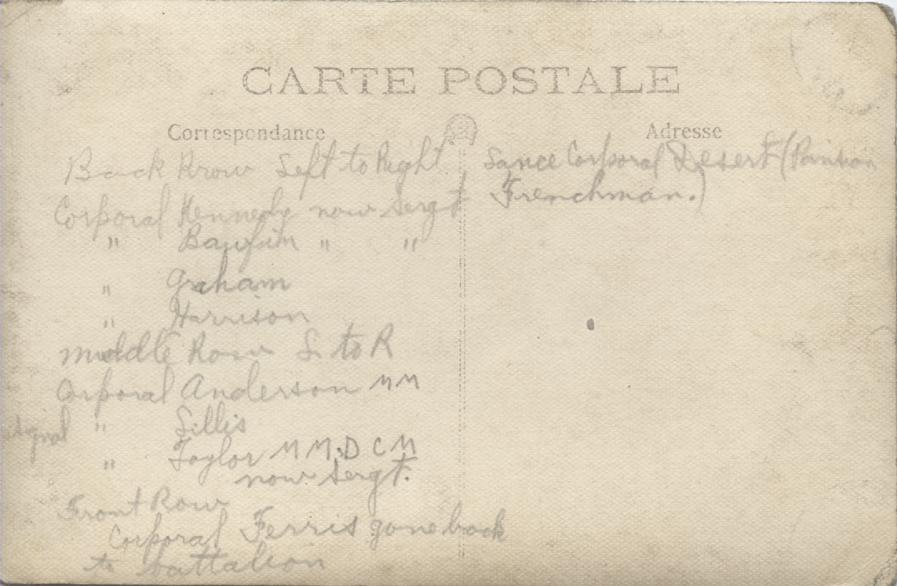 CARTE POSTALE
Correspondance
Adresse
Back Row Left to Right
Corporal Kennedy now Sergt
" " "
" Graham
" Harrison
Middle Row L to R
Corporal Anderson MM
Signal " Lillis
" Taylor MM. DCM
now Sergt.
Front Row
Corporal Ferris gone back
to battalion
Lance Corporal Desert (Parision
Frenchman.)